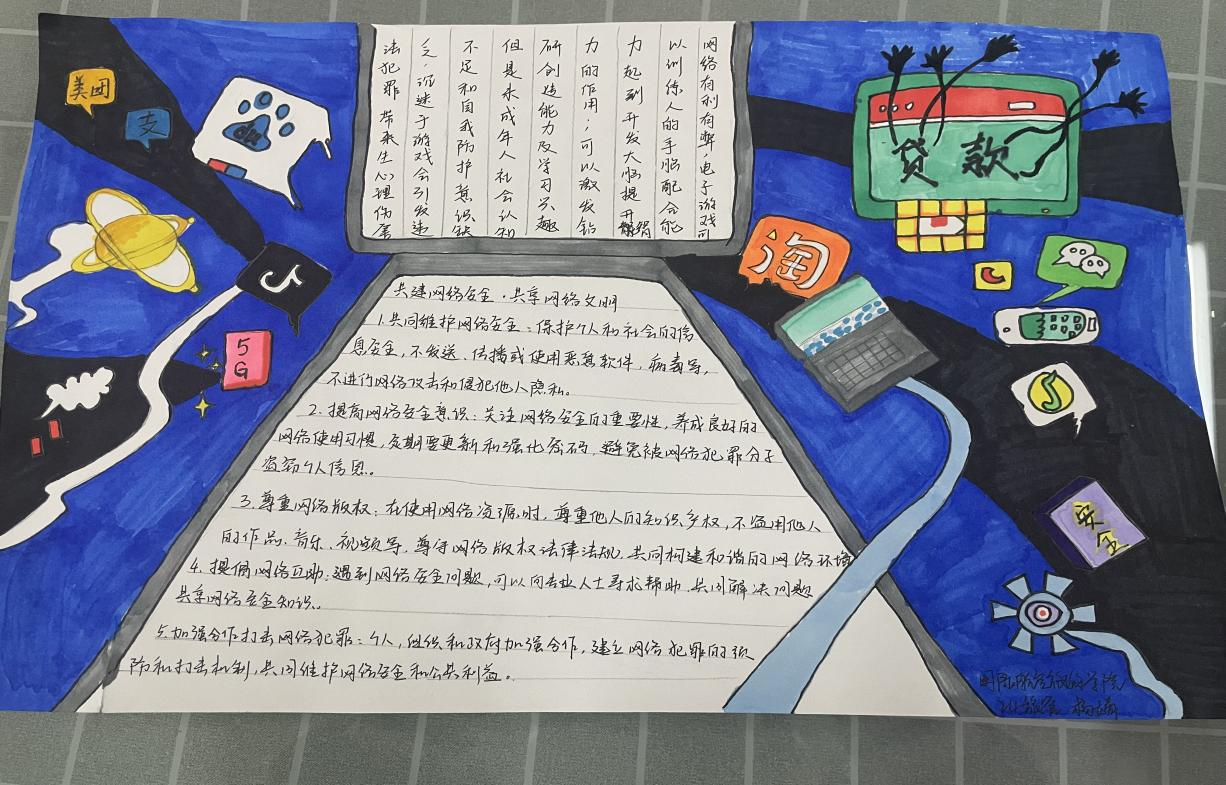 网络有利有弊，电子游戏可
以训练人的手脑配合能
力，起到开发大脑提升
力的作用；可以激发钻
研创造能力及学习兴趣
但是未成年人社会认知
不足和自我防护意识缺
乏，沉迷于游戏会引发违
法犯罪 带来生心理伤害
美团
支
du
5G
贷款
淘
安全
共建网络安全·共享网络文明
1.共同维护网络安全：保护个人和社会的信
息安全，不发送、传播或使用恶意软件，病毒等，
不进行网络攻击和侵犯他人隐私。
2.提高网络安全意识：关注网络安全的重要性，养成良好的
网络使用习惯，定期要更新和强化密码，避免被网络犯罪分子
盗窃个人信息。
3.尊重网络版权：在使用网络资源时，尊重他人的知识产权，不盗用他人
的作品、音乐、视频等，尊守网络版权法律法规，共同构建和谐的网络环境
4.提倡网络互助：遇到网络安全问题，可以向专业人士寻求帮助，共同解决问题
共享网络安全知识。
5.加强合作打击网络犯罪：个人，组织和政府加强合作，建立网络犯罪的预
防和打击机制，共同维护网络安全和公共利益。